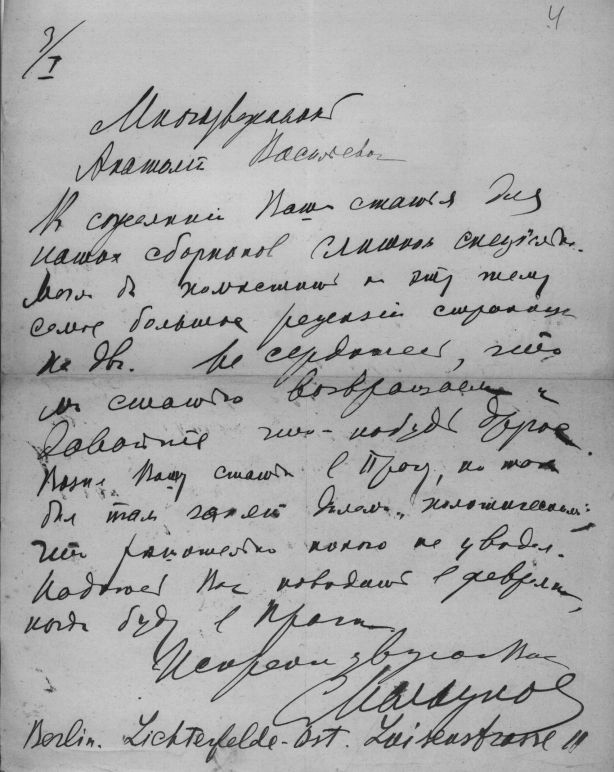 4
3/I
Многоуважаемый
Анатолий Васильевич
К сожалению Ваша статья для
наших сборников слишком специальна.
Могли бы поместить на эту тему
самое большое рецензии страницы
на две. Не сердитесь, что
мы статью возвращаем и
давайте что-нибудь другое.
Возил Вашу статью в Прагу, но так
был там занят делами,
что решительно никого не увидел.
Надеюсь Вас повидать в феврале,
когда буду в Праге
Искренно уважающий Вас
Berlin. Lichterfelde-Ost. Luisenstrasse